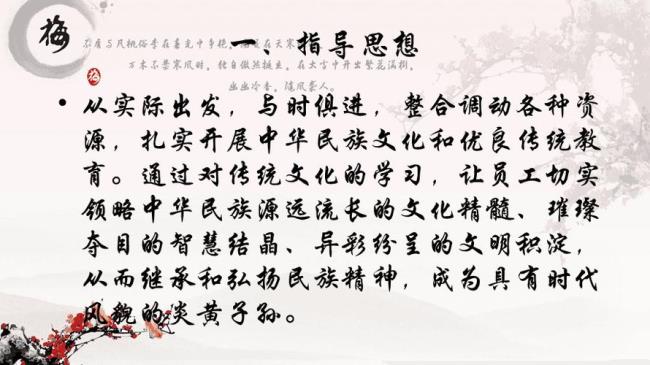 梅
不屑与凡桃俗李在春光中争艳，
一、指导思想
万木不禁寒风时，独自傲然挺立，在大雪中开出繁花满树，
幽幽冷香，随风袭人。
梅
• 从实际出发，与时俱进，整合调动各种资
源，扎实开展中华民族文化和优良传统教
育。通过对传统文化的学习，让员工切实
领略中华民族源远流长的文化精髓、璀璨
夺目的智慧结晶、异彩纷呈的文明积淀，
从而继承和弘扬民族精神，成为具有时代
风貌的炎黄子孙。